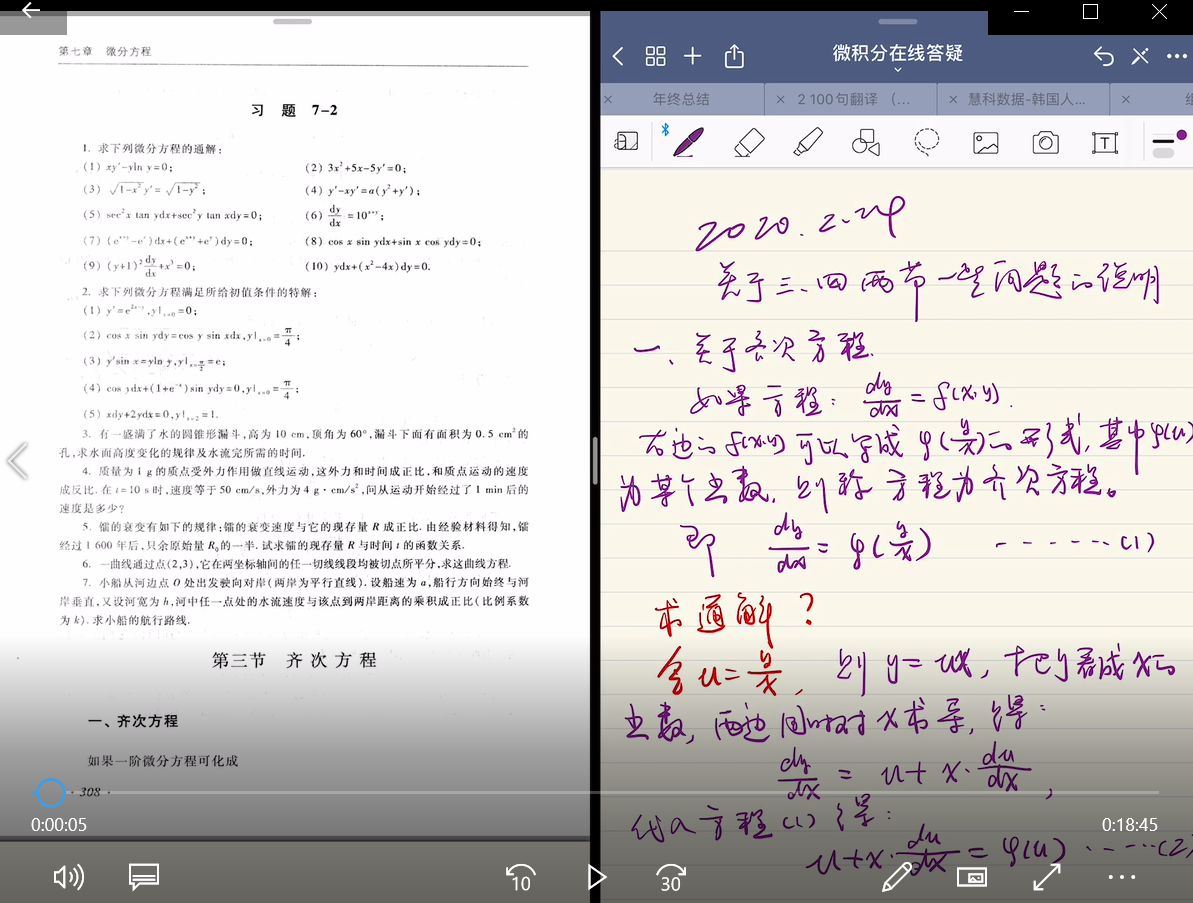 第七章 微分方程
习 题 7-2
1. 求下列微分方程的通解:
(1) xy'-yln y=0;
(2) 3x²+5x-5y'=0;
(3) √1-x² y'=√1-y²;
(4) y'-xy'=a(y²+y');
(5) sec²x tan ydx+sec²y tan xdy=0;
(6) dy/dx=10ˣ⁺ʸ;
(7) (eˣ⁺ʸ-eˣ)dx+(eˣ⁺ʸ+eʸ)dy=0;
(8) cos x sin ydx+sin x cos ydy=0;
(9) (y+1)²dy/dx+x³=0;
(10) ydx+(x²-4x)dy=0.
2. 求下列微分方程满足所给初值条件的特解:
(1) y'=e²ˣ⁻ʸ,y|ₓ₌₀=0;
(2) cos x sin ydy=cos y sin xdx,y|ₓ₌₀=π/4;
(3) y'sin x=yln y,y|ₓ₌π/2=e;
(4) cos ydx+(1+e⁻ˣ)sin ydy=0,y|ₓ₌₀=π/4;
(5) xdy+2ydx=0,y|ₓ₌₂=1.
3. 有一盛满了水的圆锥形漏斗,高为 10 cm,顶角为 60°,漏斗下面有面积为 0.5 cm²的
孔,求水面高度变化的规律及水流完所需的时间.
4. 质量为 1 g 的质点受外力作用做直线运动,这外力和时间成正比,和质点运动的速度
成反比.在 t=10 s 时,速度等于 50 cm/s,外力为 4 g·cm/s²,问从运动开始经过了 1 min 后的
速度是多少?
5. 镭的衰变有如下的规律:镭的衰变速度与它的现存量 R 成正比.由经验材料得知,镭
经过 1 600 年后,只余原始量 R₀的一半.试求镭的现存量 R 与时间 t 的函数关系.
6. 一曲线通过点(2,3),它在两坐标轴间的任一切线线段均被切点所平分,求这曲线方程.
7. 小船从河边点 O 处出发驶向对岸(两岸为平行直线).设船速为 a,船行方向始终与河
岸垂直,又设河宽为 h,河中任一点处的水流速度与该点到两岸距离的乘积成正比(比例系数
为 k).求小船的航行路线.
第三节 齐次方程
一、齐次方程
如果一阶微分方程可化成
· 308 ·
0:00:05
微积分在线答疑
年终总结
2 100句翻译 (...
慧科数据-韩国人...
T
2020.2.24
关于三、四两节一些问题的说明
一、关于齐次方程.
如果方程: dy/dx=f(x,y).
右边的f(x,y)可以写成φ(y/x)的形式,其中φ(u)
为某个函数,则称方程为齐次方程。
即 dy/dx=φ(y/x) ······(1)
求通解?
令u=y/x, 则y=ux, 把y看成x的
函数,两边同时对x求导,得:
dy/dx=u+x·du/dx,
代入方程(1)得:
u+x·du/dx=φ(u) ·····(2)
0:18:45
10
30